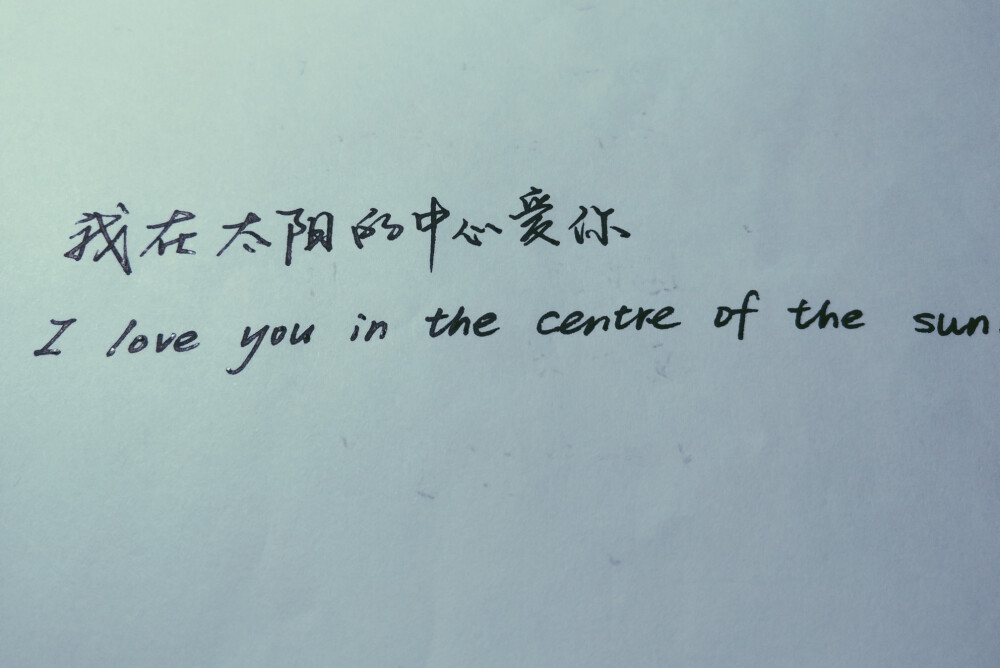 我在太阳的中心爱你
I love you in the centre of the sun.